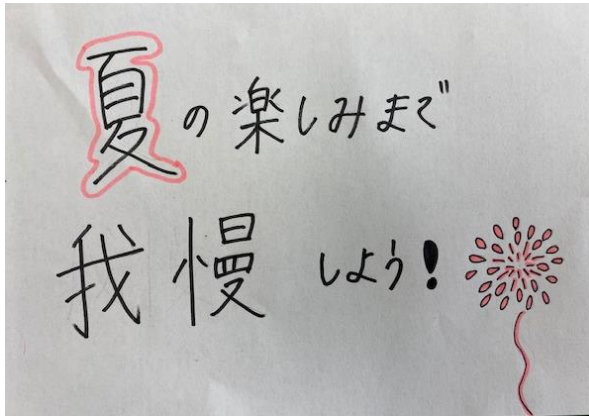 夏の楽しみまで
我慢しよう!